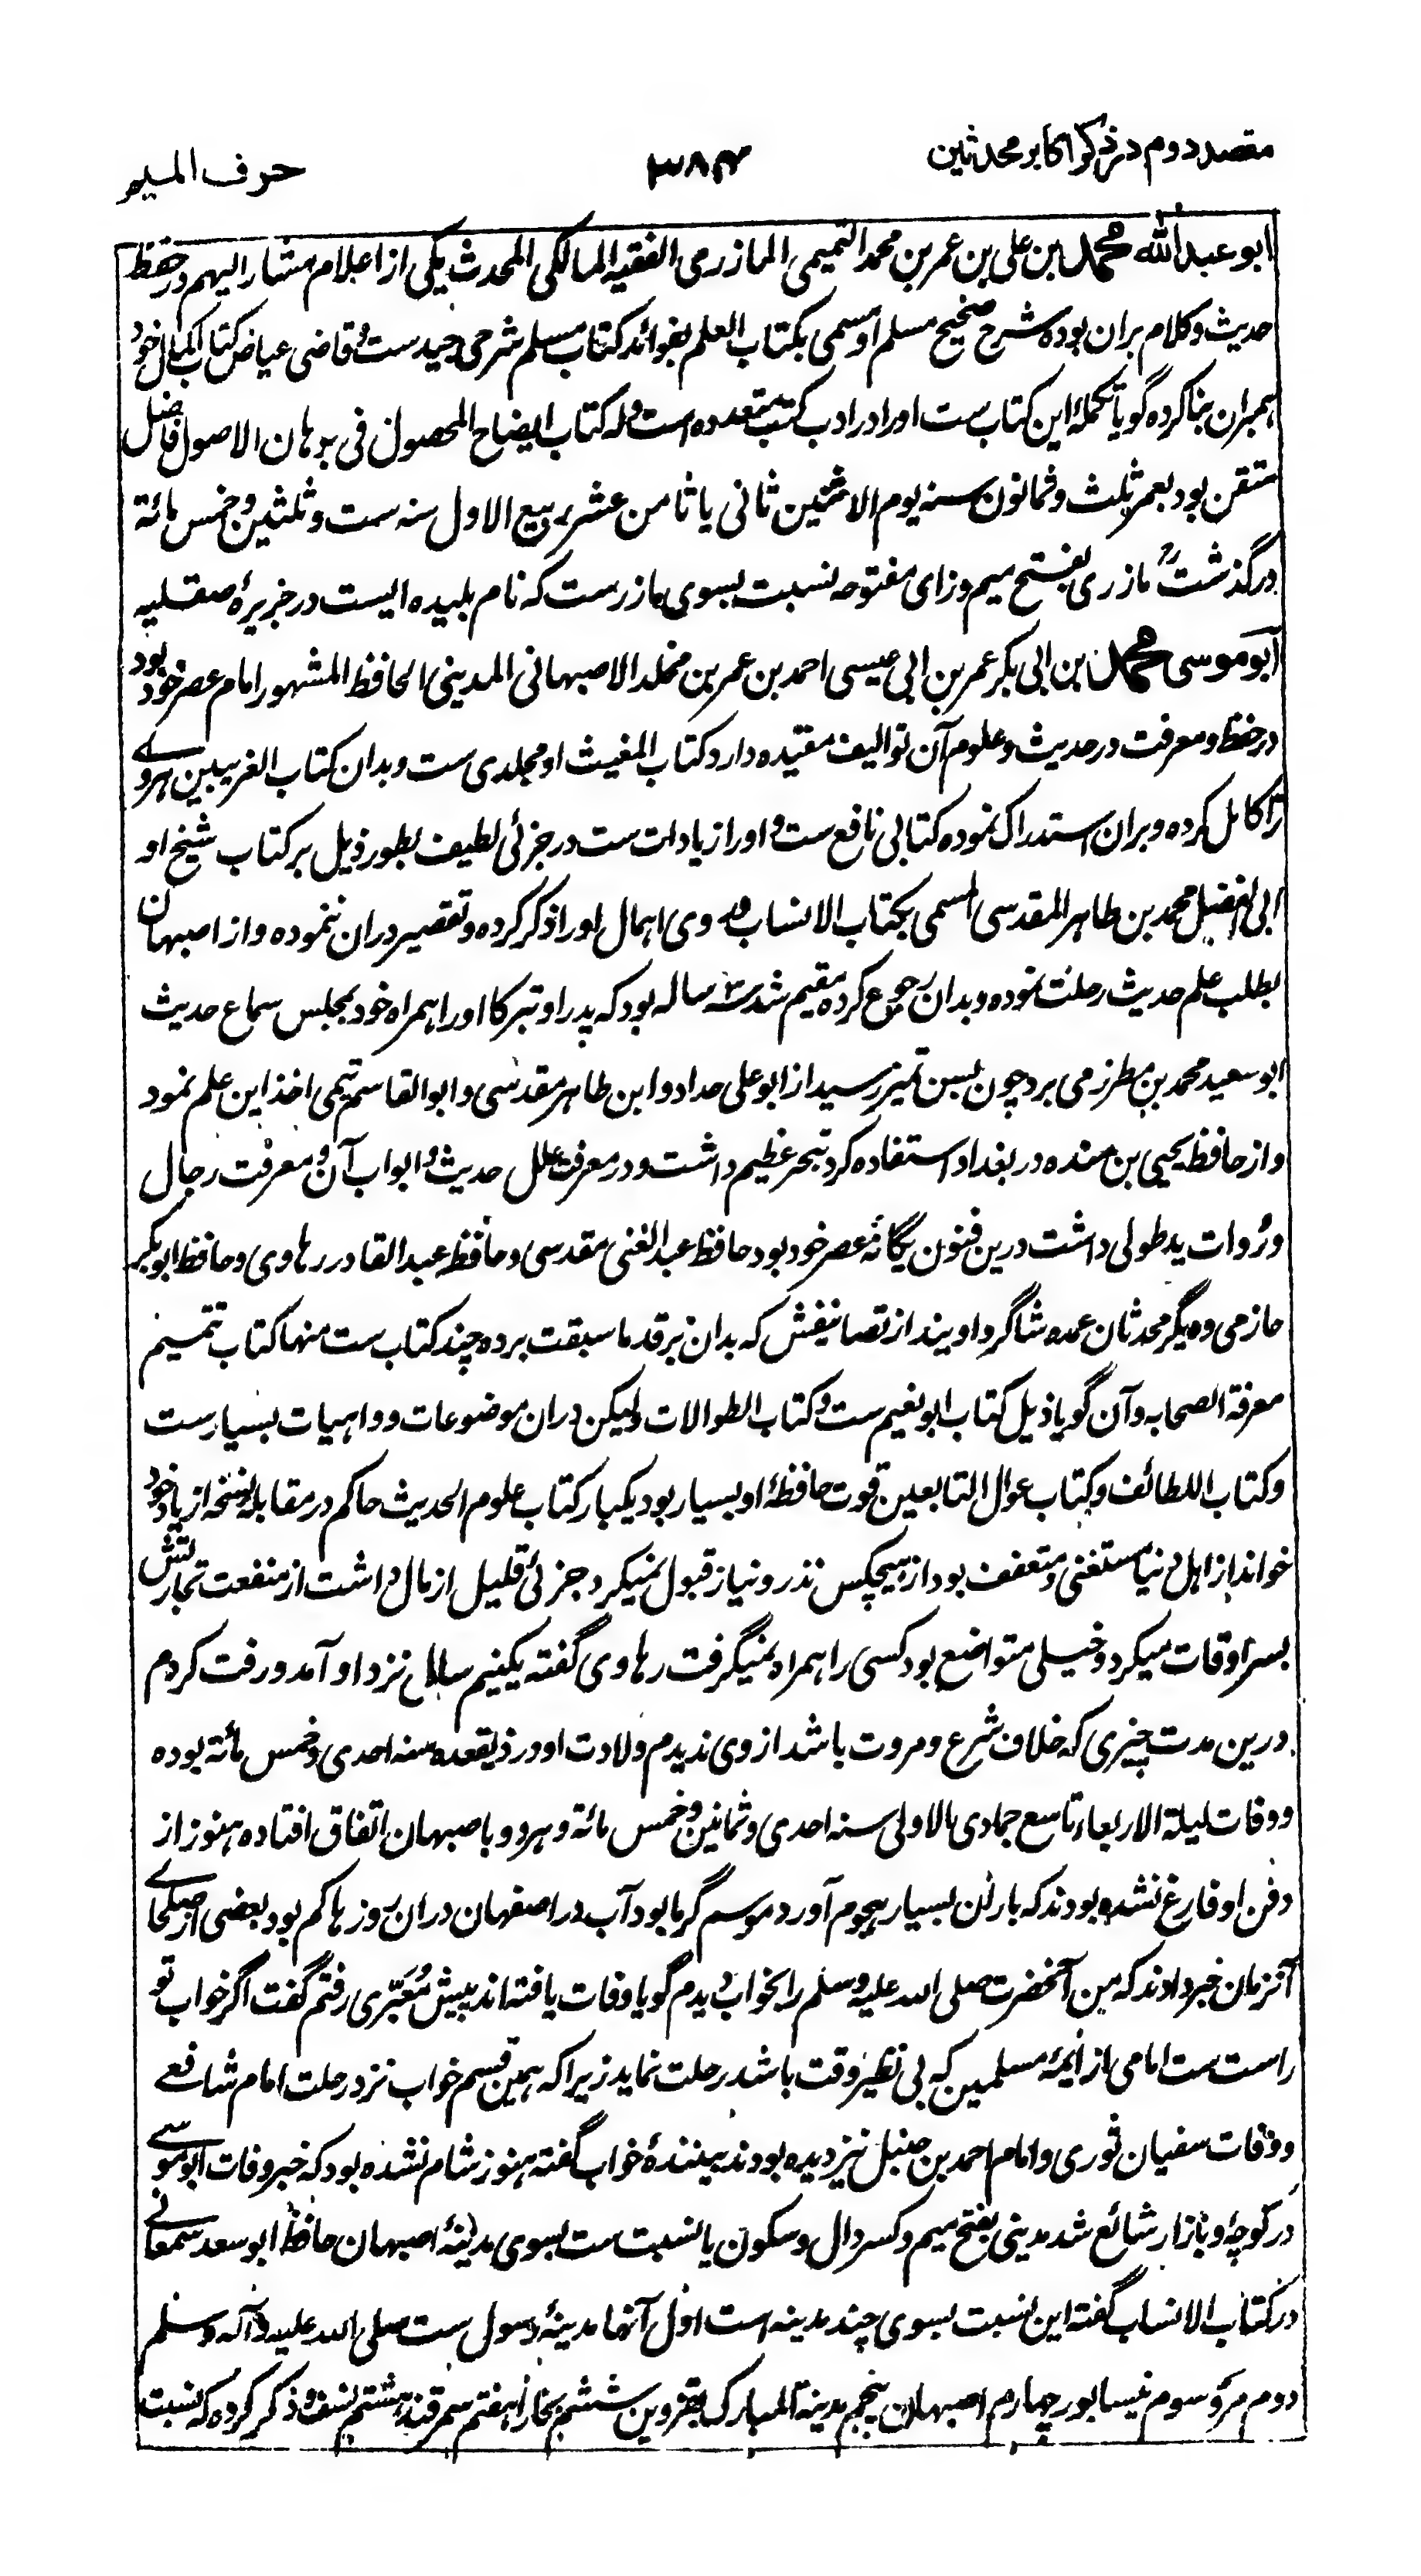 مقصد دوم در ذکر اکابر محدثین ۳۸۴ حرف المیم
ابو عبد الله محمد بن علی بن عمر بن محمد التمیمی المازرمی الفقیه المالکی المحدث یکی از اعلام مشار الیهم در حفظ
حدیث و کلام بران بوده شرح صحیح مسلم او مسمی بکتاب العلم بفوائد کتاب مسلم شرحی جید ست و قاضی عیاض کتاب اکمال خود
همبران بنا کرده گویا تکملهٔ این کتاب ست او را در ادب کتب متعدده است وله کتاب ایضاح المحصول فی برهان الاصول فاضل
متقن بود بعمر ثلث و ثمانون سنه یوم الاثنین ثانی یا ثامن عشر ربیع الاول سنه ست و ثلثین و خمس مائة
درگذشت رح مازری بفتح میم و زای مفتوحه نسبت بسوی مازر ست که نام بلیده ایست در جزیرهٔ صقلیه
ابو موسی محمد بن ابی بکر عمر بن ابی عیسی احمد بن عمر بن مخلد الاصبهانی المدینی الحافظ المشهور امام عصر خود بود
در حفظ و معرفت در حدیث و علوم آن توالیف مفیده دارد کتاب المغیث او مجلدی ست و بدان کتاب الغریبین هروے
را کامل کرده و بران استدراک نموده کتابی نافع ست و او را زیادات ست در جزئی لطیف بطور ذیل بر کتاب شیخ او
ابی الفضل محمد بن طاهر المقدسی المسمی بکتاب الانساب وی اهمال او را ذکر کرده و تقصیر دران ننموده و از اصبهان
بطلب علم حدیث رحلت نموده و بدان رجوع کرده مقیم شد سه ساله بود که پدر او تبرکا او را همراه خود بمجلس سماع حدیث
ابو سعید محمد بن مطرز می برد چون بسن تمیز رسید از ابو علی حداد و ابن طاهر مقدسی و ابو القاسم تیمی اخذ این علم نمود
و از حافظ یحیی بن منده در بغداد استفاده کرد تبحر عظیم داشت و در معرفت علل حدیث و ابواب آن و معرفت رجال
و رُوات ید طولی داشت درین فنون یگانهٔ عصر خود بود حافظ عبد الغنی مقدسی و حافظ عبد القادر رهاوی و حافظ ابوبکر
حازمی و دیگر محدثان عمده شاگرد اویند از تصانیفش که بدان بر قدما سبقت برده چند کتاب ست منها کتاب تتمیم
معرفة الصحابه و آن گویا ذیل کتاب ابو نعیم ست و کتاب الطوالات ولیکن دران موضوعات و واهیات بسیار ست
و کتاب اللطائف و کتاب عوال التابعین قوت حافظهٔ او بسیار بود یکبار کتاب علوم الحدیث حاکم در مقابلهٔ نسخه از یاد خود
خواند از اهل دنیا مستغنی و متعفف بود از هیچکس نذر و نیاز قبول نمیکرد جزئی قلیل از مال داشت از منفعت تجارتش
بسر اوقات میکرد و خیلی متواضع بود کسی را همراه نمیگرفت رهاوی گفته یکنیم سال نزد او آمد و رفت کردم
درین مدت چیزی که خلاف شرع و مروت باشد از وی ندیدم ولادت او در ذیقعده سنه احدی و خمس مائة بوده
و وفات لیلة الاربعاء تاسع جمادی الاولی سنه احدی و ثمانین و خمس مائة و هر دو باصبهان اتفاق افتاده هنوز از
دفن او فارغ نشده بودند که باران بسیار هجوم آورد موسم گرما بود آب در اصفهان دران روزها کم بود بعضی از صلحاے
آنزمان خبر دادند که من آنحضرت صلی الله علیه وسلم را بخواب دیدم گویا وفات یافته اند پیش مُعَبّری رفتم گفت اگر خواب تو
راست ست امامی از ایمهٔ مسلمین که بی نظیر وقت باشد رحلت نماید زیرا که همین قسم خواب نزد رحلت امام شافعے
و وفات سفیان ثوری و امام احمد بن حنبل نیز دیده بودند بینندهٔ خواب گفته هنوز شام نشده بود که خبر وفات ابو موسے
در کوچه و بازار شائع شد مدینی بفتح میم و کسر دال و سکون یا نسبت ست بسوی مدینهٔ اصبهان حافظ ابو سعد سمعانے
در کتاب الانساب گفته این نسبت بسوی چند مدینه است اول آنها مدینهٔ رسول ست صلی الله علیه وآله وسلم
دوم مرو سوم نیسابور چهارم اصبهان پنجم مدینة المبارک بقزوین ششم بخارا هفتم سمرقند هشتم نسف و ذکر کرده که نسبت